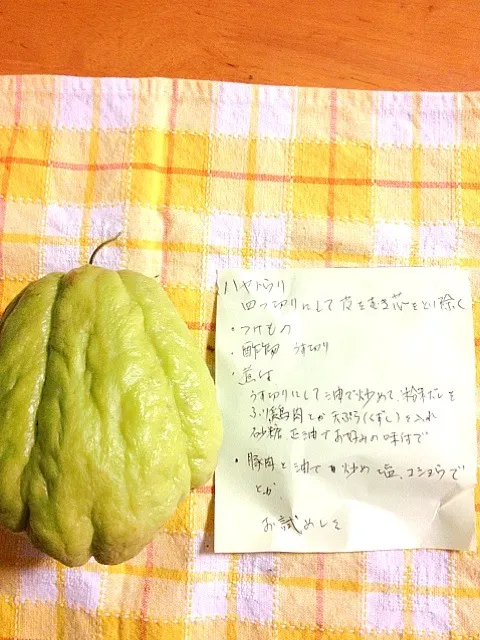 ハヤトウリ
四つ切りにして皮をむき芯をとり除く
・つけもの
・酢物 うす切り
・煮は
うす切りにして油で炒めて粉末だしを
ふり鶏肉とか天ぷら(くずし)を入れ
砂糖 正油でお好みの味付で
・豚肉と油で炒め 塩、コショウで
とか
お試めしを